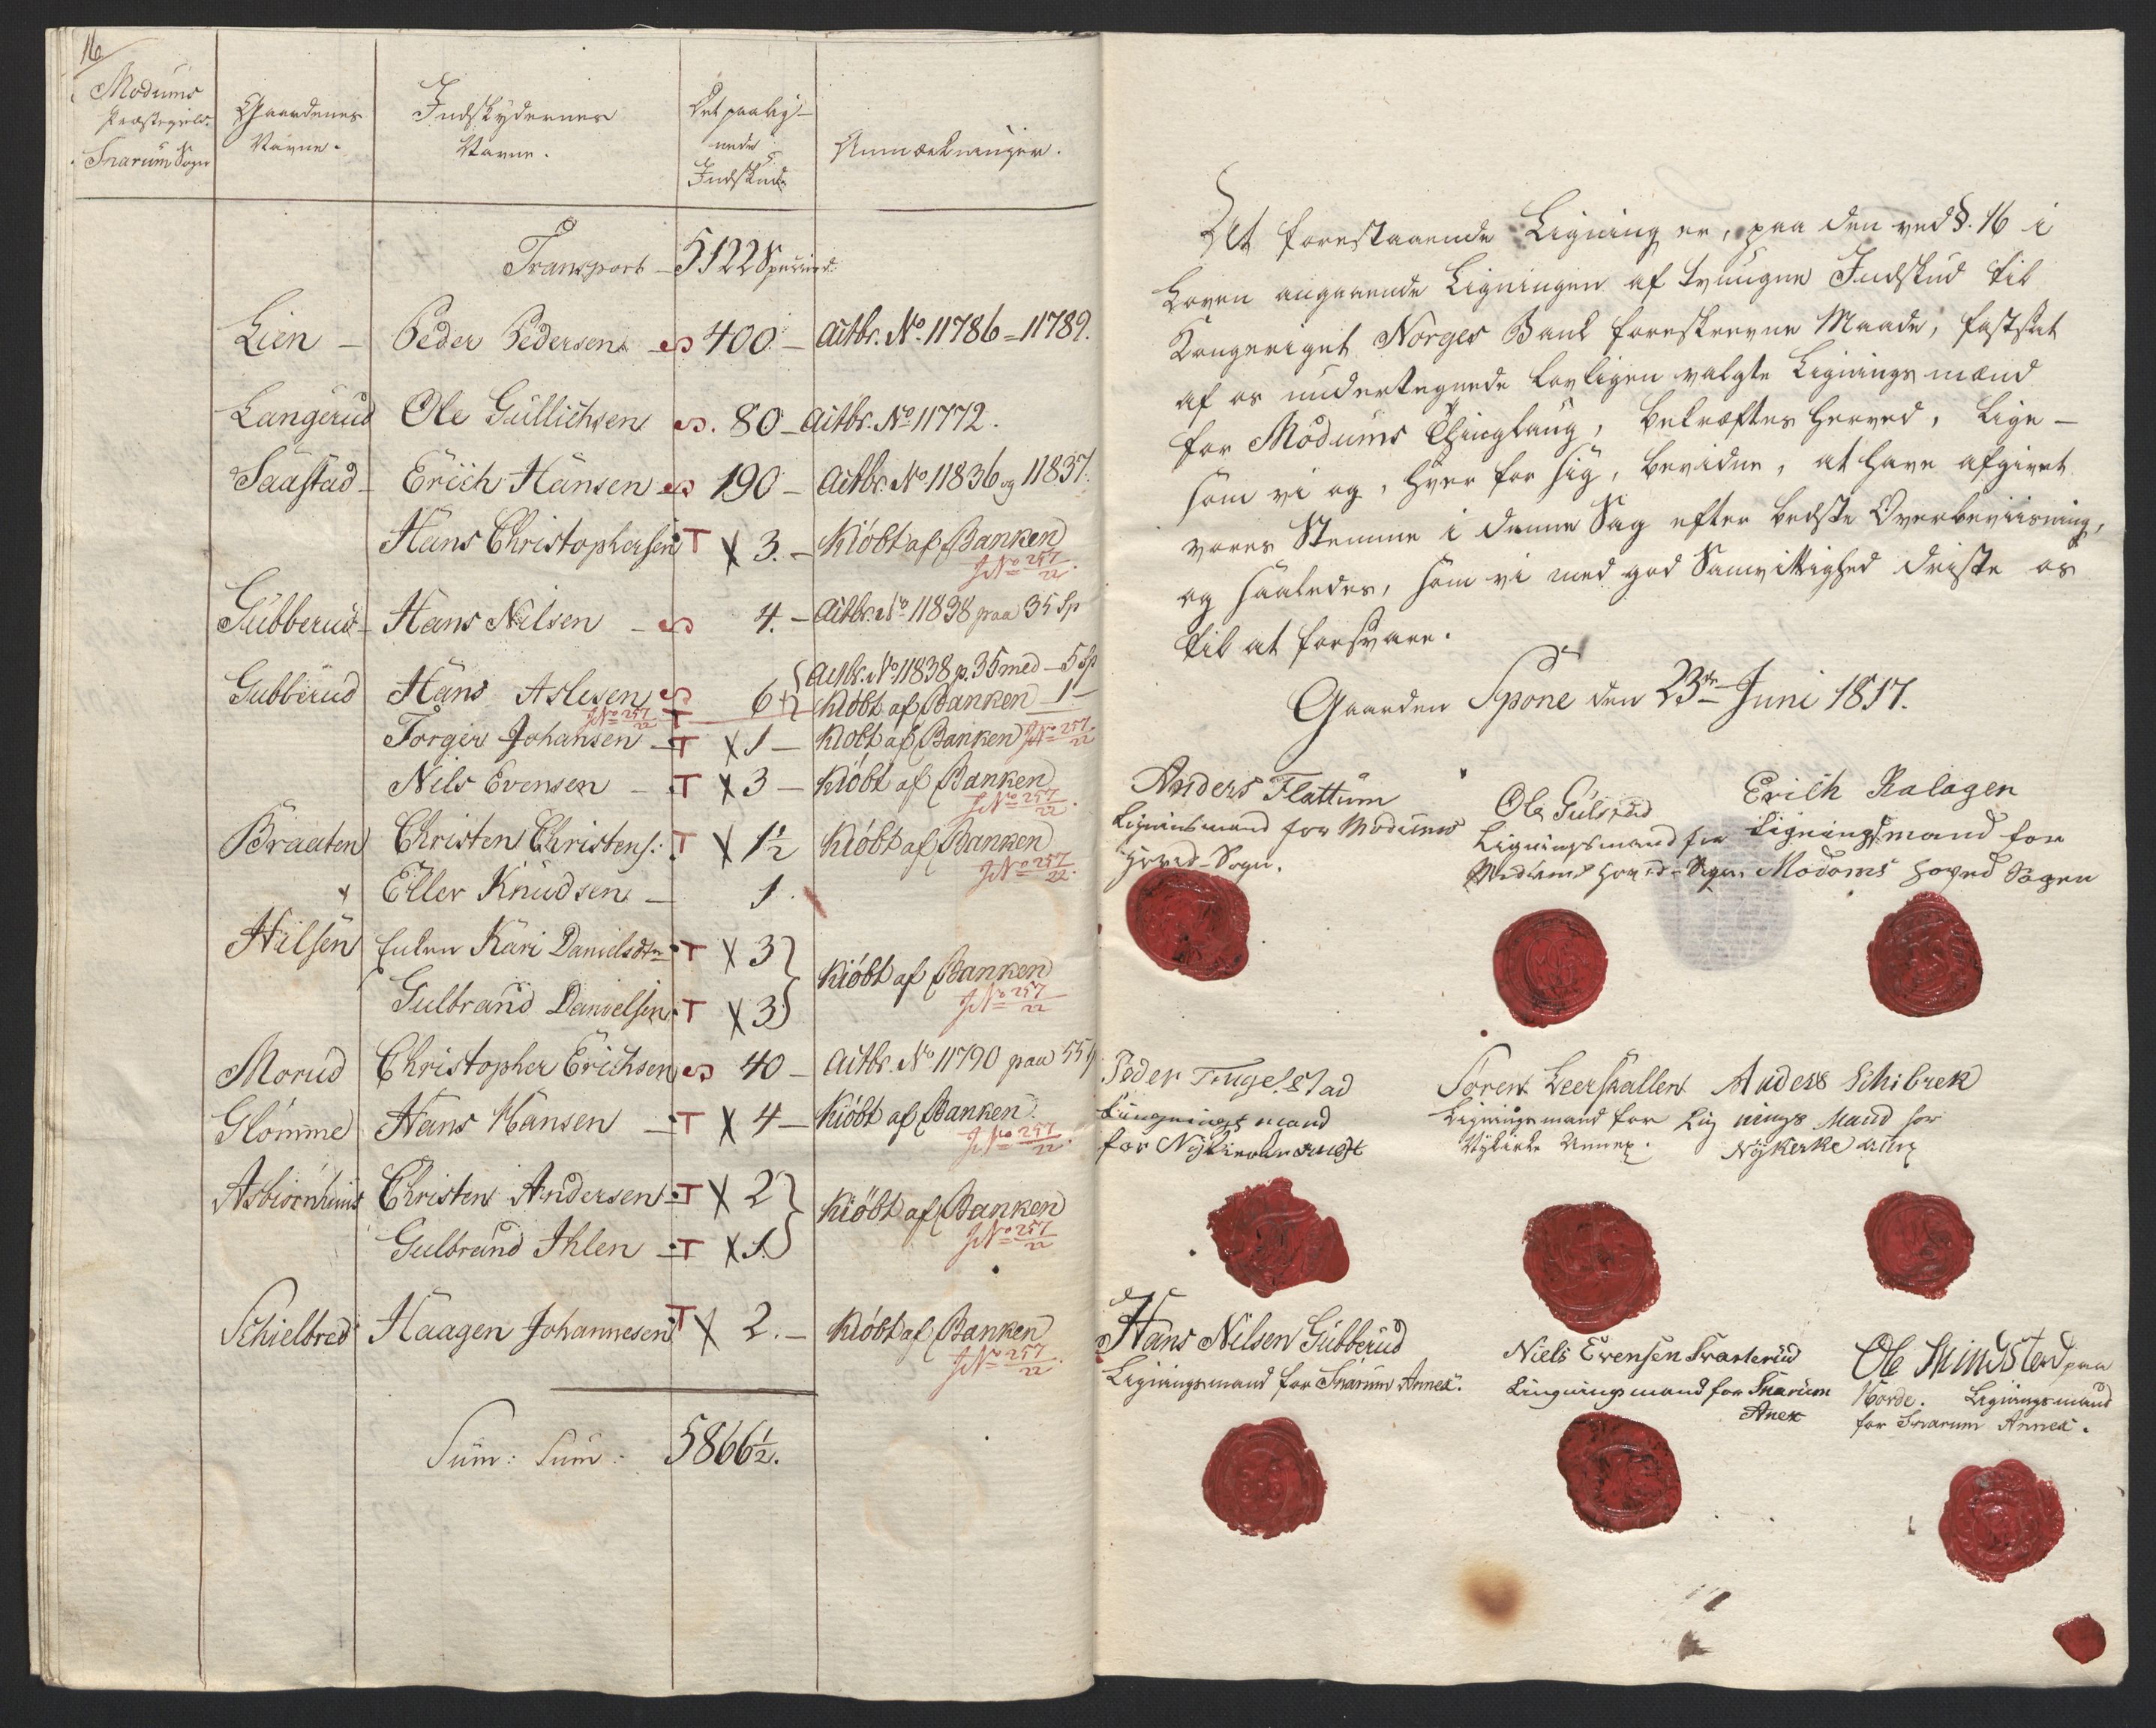 16
Modums Gaardenes Indskydernes Det paalig-
Præstegield. Navne. Navne. nede Anmærkninger.
Snarum Sogn Indskud
Transport - 5122 Speciesd.
Lien - Peder Pedersen - S 400 - Actbr. No. 11786 = 11789.
Langerud Ole Gullichsen S. 80 - Actbr. No 11772.
Saastad - Erich Hansen - S 190 - Actbr. No 11836 og 11837.
Hans Christophersen T X 3. - Kiöbt af Banken
JNo 257/22.
Gubberud - Hans Nilsen - S 4. - Actbr. No 11838 paa 35 Sp
Gubberud Hans Aslesen S 6 { Actbr. No 11838 p. 35 med - 5 Sp
JNo 257/22 T Kiöbt af Banken - 1 -
Torger Johansen - T X 1 - Kiöbt af Banken JNo 257/22
Nils Evensen - T X 3 - Kiöbt af Banken
JNo 257/22.
Braaten Christen Christens: T X 1½ Kiöbt af Banken
JNo 257/22.
Eller Knudsen - 1.
Hilsen Enken Kari Danielsdtr T X 3 }
Kiöbt af Banken
Gulbrand Danielsen T X 3 }
JNo 257/22
Morud Christopher Erichsen S 40 - Actbr. No 11790 paa 55 Sp
Glömme Hans Hansen - T X 4 - Kiöbt af Banken
JNo 257/22.
Asbiörnhuus Christen Andersen - T X 2 }
Kiöbt af Banken
Gulbrand Ihlen - T X 1. }
JNo 257/22
Schielbred Haagen Johannesen T X 2. - Kiöbt af Banken
JNo 257/22.
Sum: Sum: 5866½.
At forestaaende Ligning er, paa den ved §. 16 i
Loven angaaende Ligningen af tvungne Indskud til
Kongeriget Norges Bank foreskrevne Maade, fastsat
af os undertegnede lovligen valgte Ligningsmænd
for Modums Thinglaug, bekræftes herved, lige-
som vi og, hver for sig, bevidne, at have afgivet
vores Stemme i denne Sag efter bedste Overbeviisning,
og saaledes, som vi med god Samvittighed driste os
til at forsvare.
Gaarden Spone den 23de Juni 1817.
Anders Flattum
Ligningsmand for Modums
Hoved-Sogn.
Ole Gulsrud
Ligningsmand for
Modums Hoved-Sogn.
Erich Kalagen
Ligningsmand for
Modoms Hoved Sogen
Peder Tingelstad
Lingningsmand
for Nykirke
Soren Leerskallen
Ligningsmand for
Nykirke Annex.
Anders Schibrek
Lig nings Mand for
Nykerke anex
Hans Nilsen Gubberud
Ligningsmand for Snarum Annex.
Niels Evensen Svarterud
Lingningsmand for Snarum
Anex
Ole paa
Horde. Ligningsmand
for Snarum Annex.